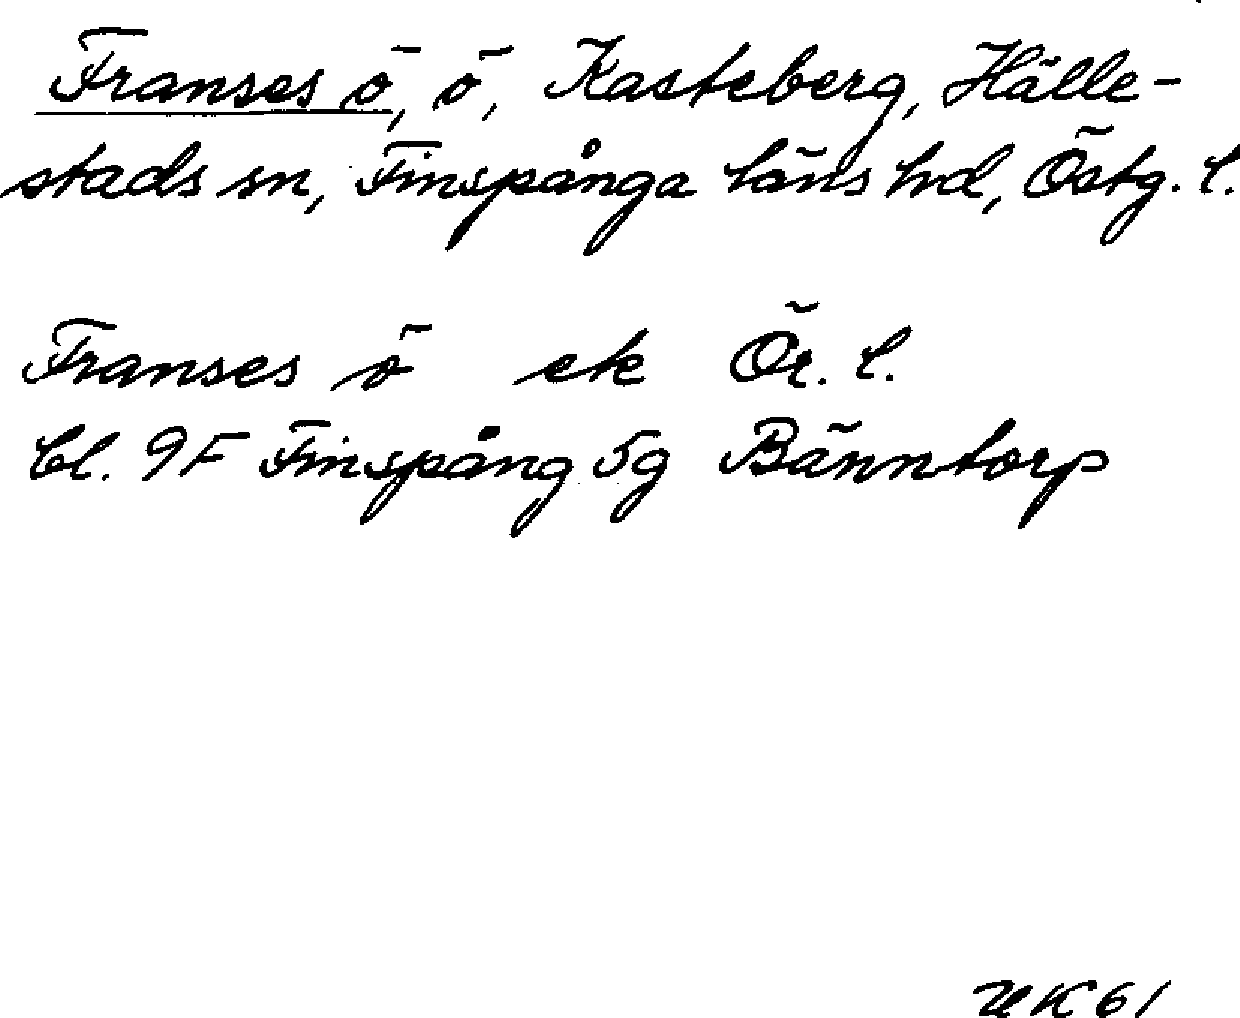 Franses ö, ö, Kasteberg, Hälle-
stads sn, Finspånga läns hd, Östg. l.
Franses ö ek Ör. l.
bl. 9F Finspång 5g Bänntorp
UK 61